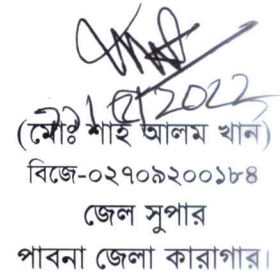 (মোঃ শাহ আলম খান)
বিজে-০২৭০৯২০০১৮৪
জেল সুপার
পাবনা জেলা কারাগার।